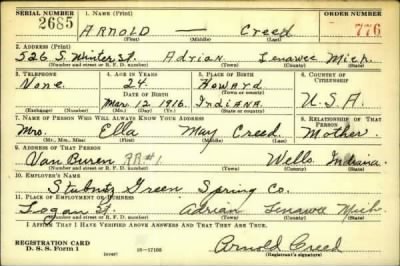 SERIAL NUMBER 1. NAME (Print) ORDER NUMBER
2685 ARNOLD — Creed 776
(First) (Middle) (Last)
2. ADDRESS (Print)
526 S. Winter St. Adrian Lenawee Mich.
(Number and street or R. F. D. number) (Town) (County) (State)
3. TELEPHONE 4. AGE IN YEARS 5. PLACE OF BIRTH 6. COUNTRY OF CITIZENSHIP
None. 24. Howard
DATE OF BIRTH (Town or county)
Mar. 12 1916. Indiana. U.S.A.
(Exchange) (Number) (Mo.) (Day) (Yr.) (State or country)
7. NAME OF PERSON WHO WILL ALWAYS KNOW YOUR ADDRESS 8. RELATIONSHIP OF THAT PERSON
Mrs. Ella May Creed. Mother.
(Mr., Mrs., Miss) (First) (Middle) (Last)
9. ADDRESS OF THAT PERSON
Van Buren RR#1. Wells. Indiana.
(Number and street or R. F. D. number) (Town) (County) (State)
10. EMPLOYER'S NAME
Stubnitz Green Spring Co.
11. PLACE OF EMPLOYMENT OR BUSINESS
Logan St. Adrian Lenawee Mich
(Number and street or R. F. D. number) (Town) (County) (State)
I AFFIRM THAT I HAVE VERIFIED ABOVE ANSWERS AND THAT THEY ARE TRUE.
REGISTRATION CARD
D. S. S. Form 1 (over) 16—17105 Arnold Creed
(Registrant's signature)